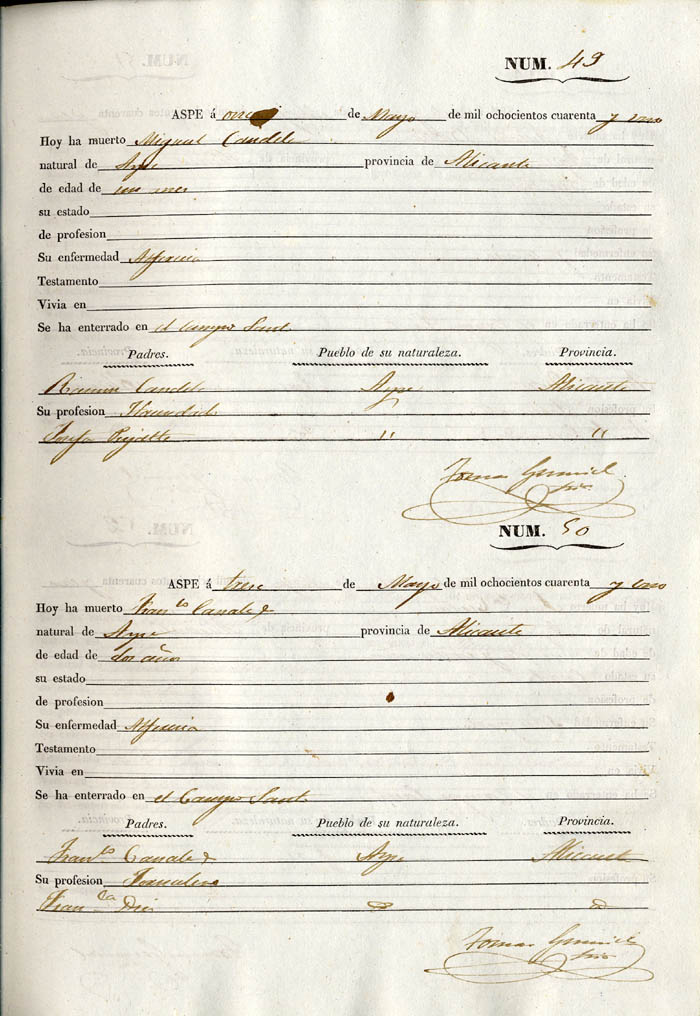 NUM. 49
ASPE á once de Mayo de mil ochocientos cuarenta y uno
Hoy ha muerto Miguel Candela
natural de Aspe provincia de Alicante
de edad de un mes
su estado
de profesion
Su enfermedad Alferecia
Testamento
Vivia en
Se ha enterrado en el Campo Santo
Padres. Pueblo de su naturaleza. Provincia.
Ramon Candela Aspe Alicante
Su profesion
Josefa " "
Tomas
NUM. 50
ASPE á trese de Mayo de mil ochocientos cuarenta y uno
Hoy ha muerto Fran.co
natural de Aspe provincia de Alicante
de edad de dos años
su estado
de profesion
Su enfermedad Alferecia
Testamento
Vivia en
Se ha enterrado en el Campo Santo
Padres. Pueblo de su naturaleza. Provincia.
Fran.co Aspe Alicante
Su profesion Jornalero
Fran.ca
Tomas